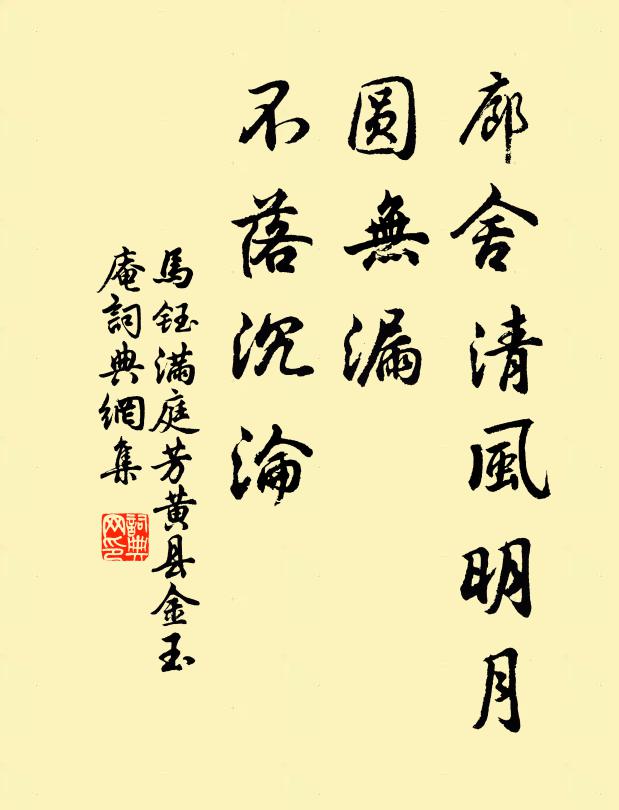 廊舍清風明月
圆無漏
不落沉淪
馬鈺满庭芳黄县金玉
庵詞典網集
詞典网印